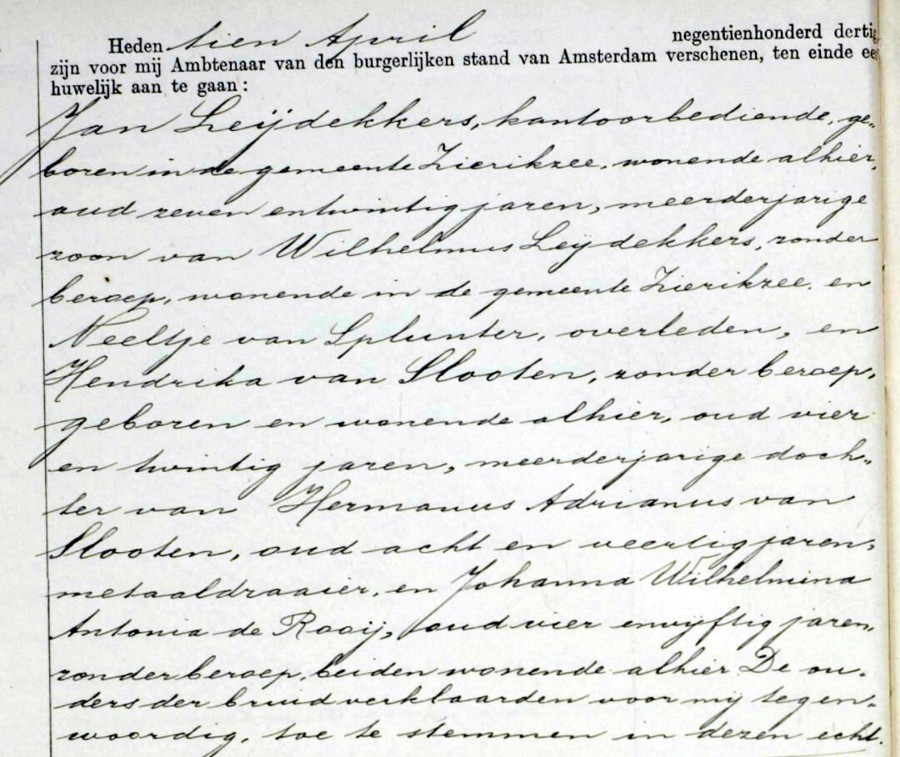 Heden tien April negentienhonderd dertig
zijn voor mij Ambtenaar van den burgerlijken stand van Amsterdam verschenen, ten einde ee
huwelijk aan te gaan:
Jan Leijdekkers, kantoorbediende, ge„
boren in de gemeente Zierikzee, wonende alhier,
oud zeven en twintig jaren, meerderjarige
zoon van Wilhelmus Leijdekkers, zonder
beroep, wonende in de gemeente Zierikzee, en
Neeltje van Splunter, overleden, en
Hendrika van Slooten, zonder beroep,
geboren en wonende alhier, oud vier
en twintig jaren, meerderjarige doch„
ter van Hermanus Adrianus van
Slooten, oud acht en veertig jaren,
metaaldraaier, en Johanna Wilhelmina
Antonia de Rooij, oud vier en vijftig jaren,
zonder beroep, beiden wonende alhier De ou„
ders der bruid verklaarden voor mij tegen„
woordig, toe te stemmen in dezen echt.